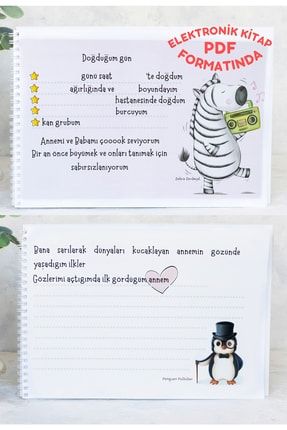 ELEKTRONİK KİTAP
PDF
FORMATINDA
Doğduğum gün
günü saat 'te doğdum
ağırlığında ve boyundayım
hastanesinde doğdum
burcuyum
kan grubum
Annemi ve Babamı çooook seviyorum
Bir an önce büyümek ve onları tanımak için
sabırsızlanıyorum
Bana sarılarak dünyaları kucaklayan annemin gözünde
yaşadığım ilkler
Gözlerimi açtığımda ilk gördüğüm annem